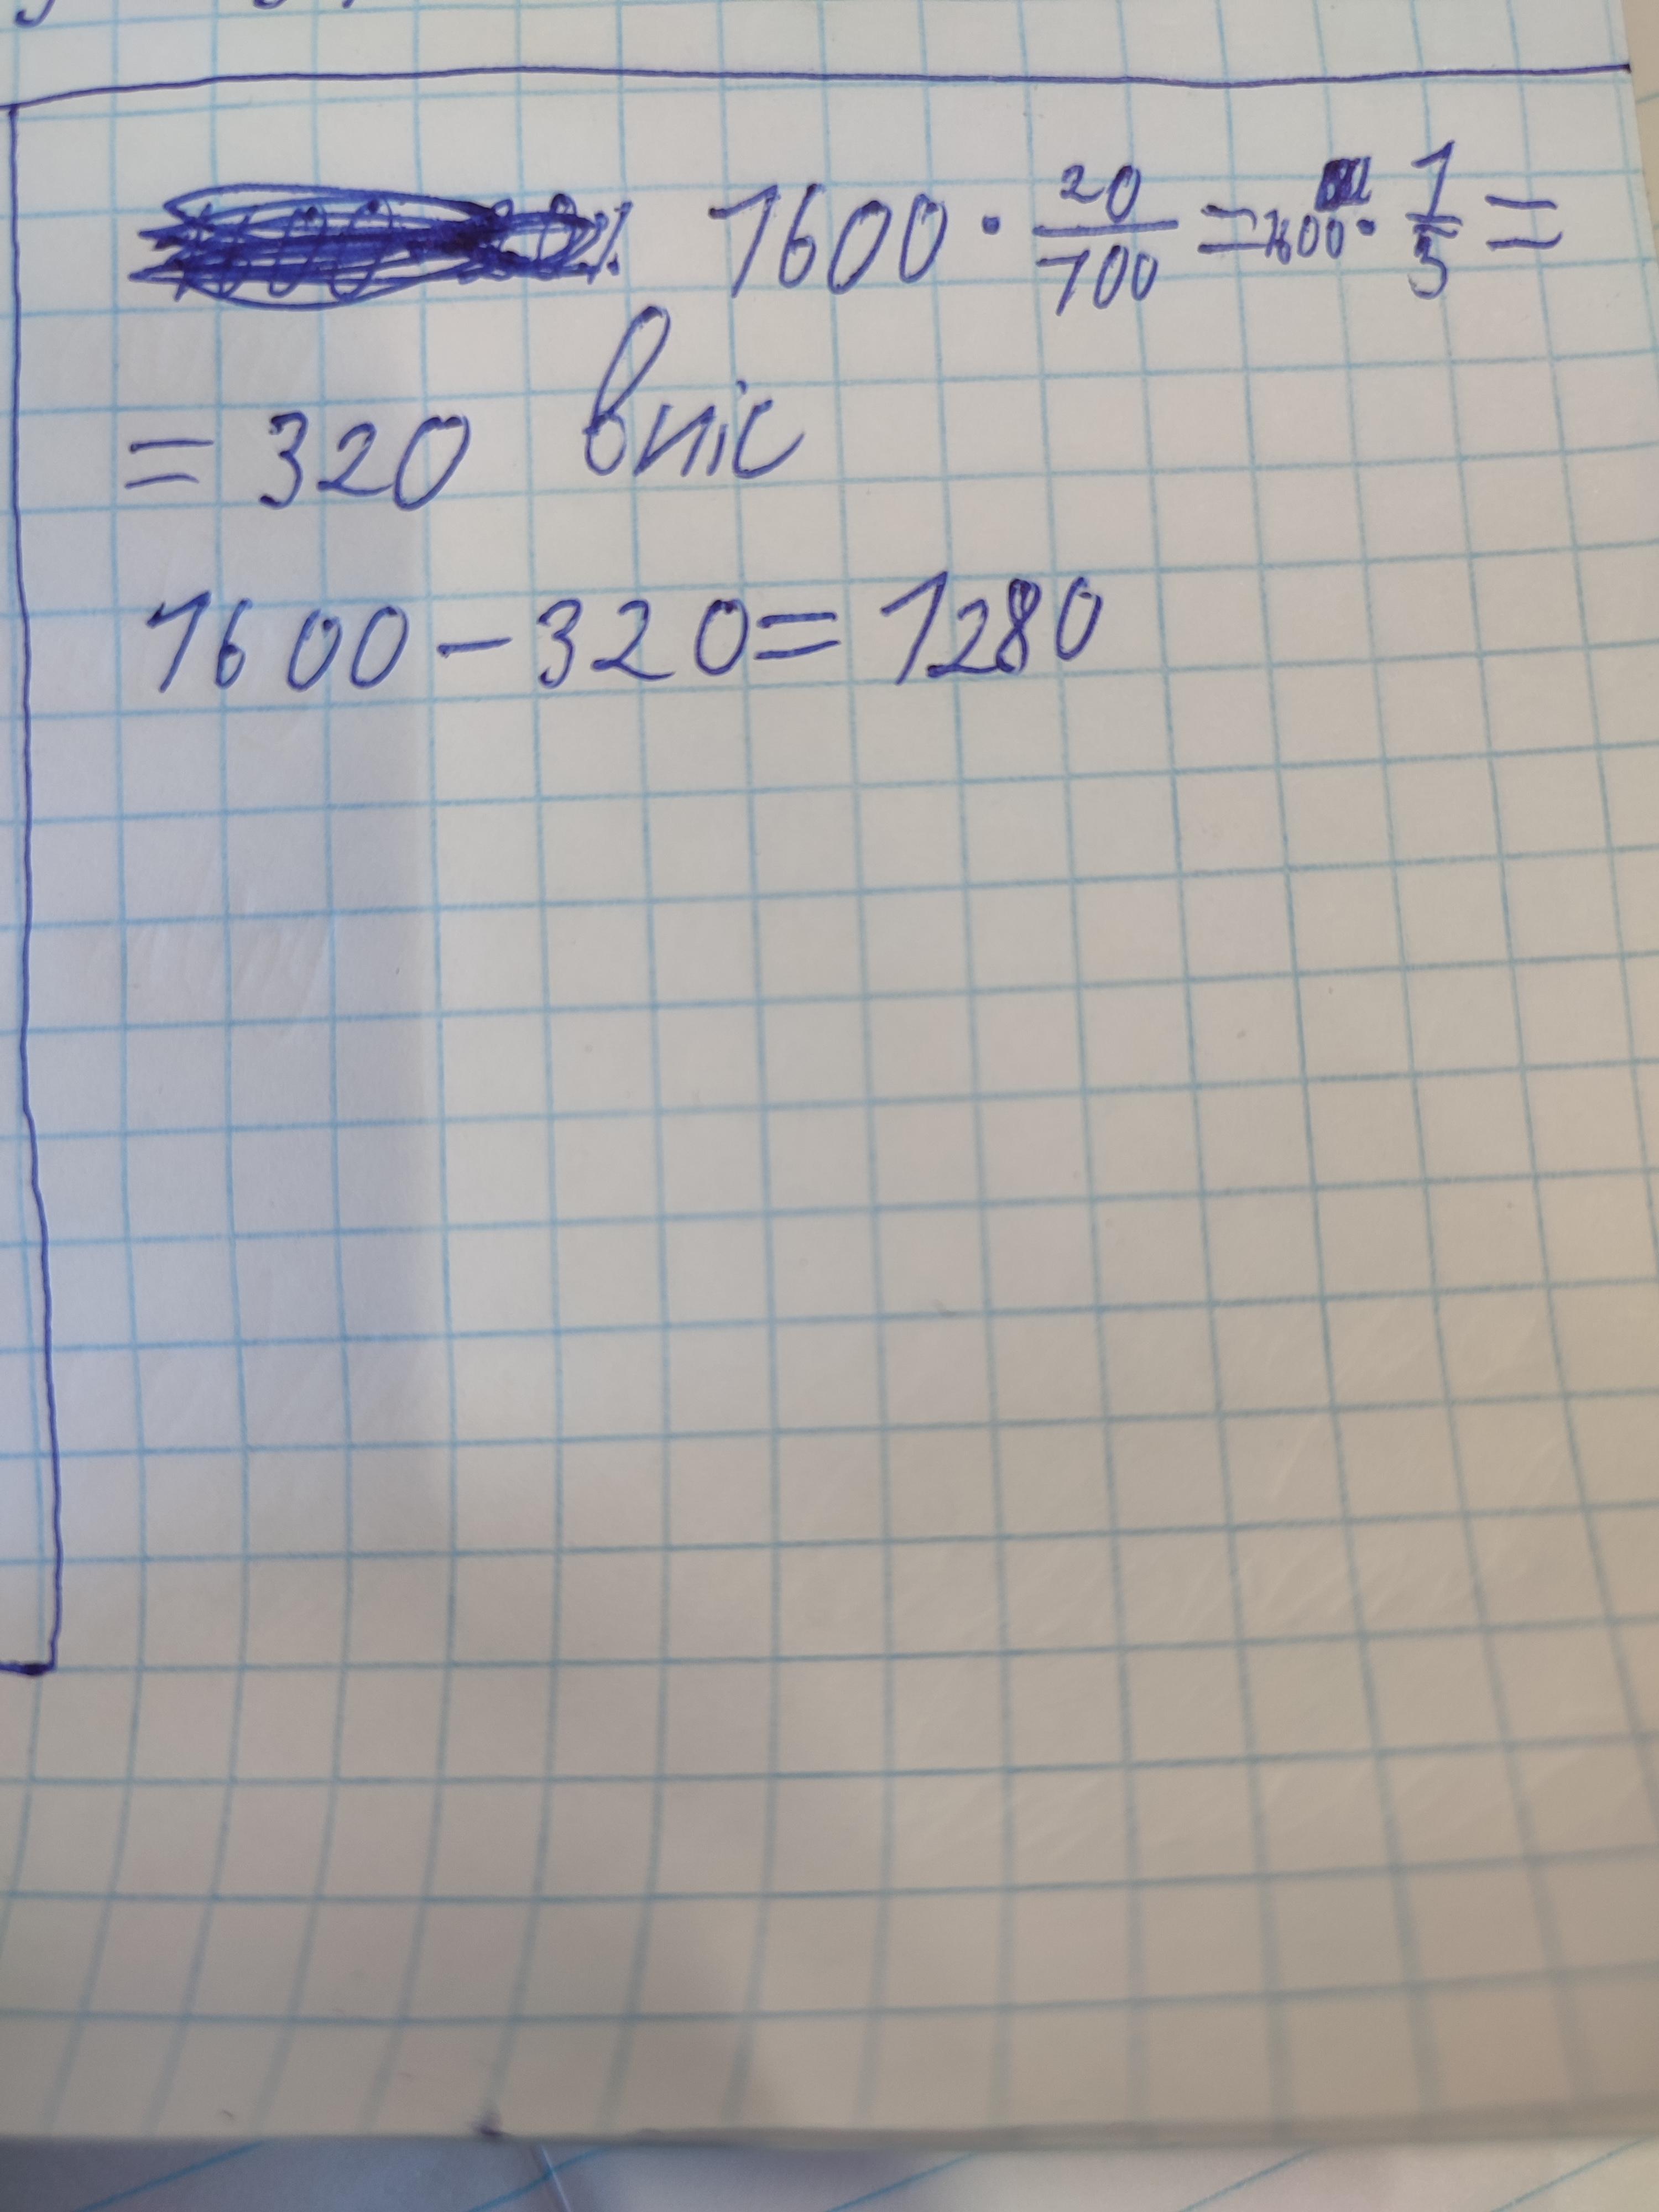 1600 · 20/100 = 1600 · 1/5 =
= 320 вніс
1600 - 320 = 1280